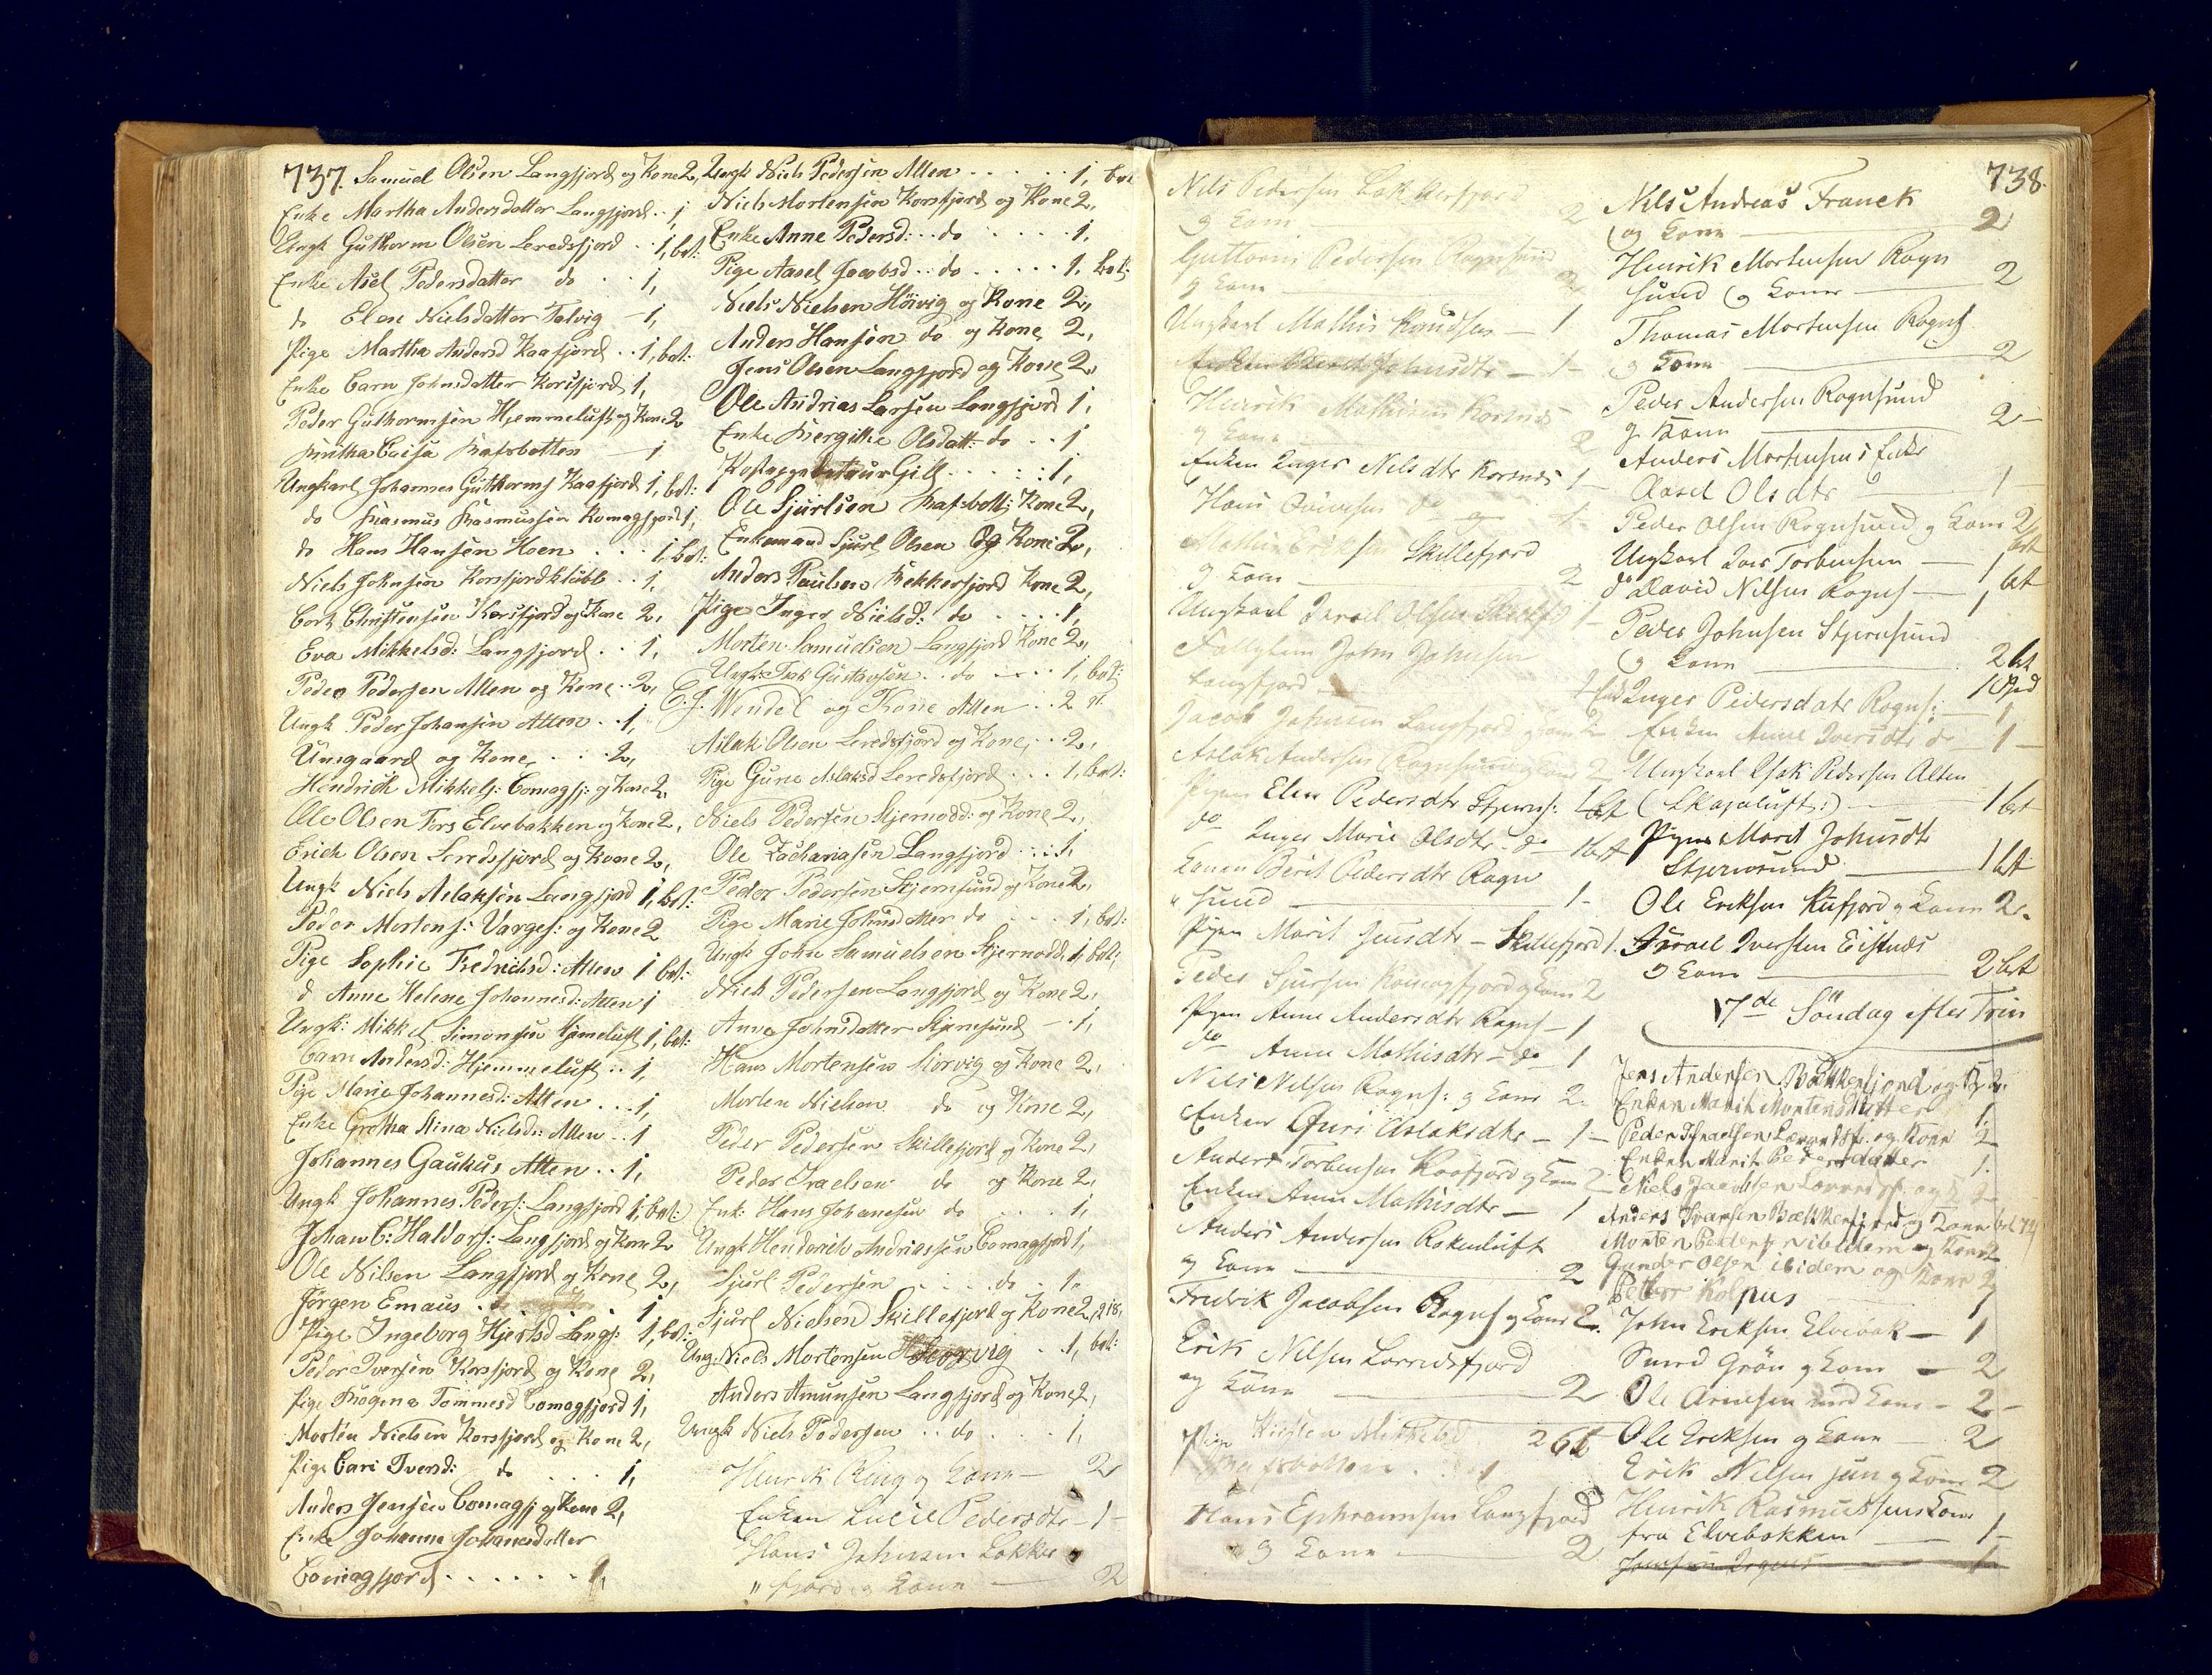 737. Samuel Olsen Langfjord og Kone 2,
Enke Martha Andersdatter Langfjord .. 1
Ungk Guthorm Olsen Leredsfjord .. 1, bet:
Enke Asel Pedersdatter do . 1,
do Elen Nielsdatter Talvig — 1,
Pige Martha Andersd Kaafjord .. 1, bet:
Enke Carn Johnsdatter Korsfjord 1,
Peder Guthormsen Hjemmeluft og Kone 2
Caisa Rafsbotten — 1
Ungkarl Johannes Guthorms Kaafjord 1, bet:
do Rasmus Rasmussen Komagfjord 1,
do Hans Hansen Koen . . . 1, bet:
Niels Johnsen Korsfjordklubb .. 1,
Cort Christensen Korsfjord og Kone 2,
Eva Mikkelsd: Langfjord .. 1,
Peder Pedersen Alten og Kone .. 2,
Ungk Peder Johansen Alten .. 1,
Unsgaard og Kone . . 2,
Hendrich Mikkels: Comagfj: og Kone 2,
Ole Olsen Fors Elvebakken og Kone 2,
Erich Olsen Leredsfjord og Kone 2,
Ungk Niels Aslaksen Langfjord 1, bet:
Peder Mortens: Varges: og Kone 2
Pige Sophie Fredrichsd: Alten 1 bet:
d Anne Helene Johannesd: Alten 1
Ungk: Mikkel Simonsen Hjemeluft 1, bet:
Carn Andersd: Hjemmeluft .. 1,
Pige Marie Johannesd: Alten . . . 1,
Enke Gretha Stina Nielsd: Alten .. 1
Johannes Gaukus Alten .. 1,
Ungk Johannes Peders: Langfjord 1, bet:
Johan C: Haldors: Langfjord og Kone 2
Ole Nilsen Langfjord og Kone 2,
Jørgen Emaus . . . 1
Pige Ingeborg Hjertsd Langf: 1, bet:
Peder Iversen Korsfjord og Kone 2,
Pige Ragna Tommesd Comagfjord 1,
Morten Nielsen Korsfjord og Kone 2,
Pige Cari Iversd: do . . . 1,
Anders Jensen Comagfj og Kone 2,
Enke Johanna Johanesdatter
Comagfjord . . . . . . 1,
Ungk Niels Pedersen Alten . . . . . 1, bet
Niels Mortensen Korsfjord og Kone 2,
Enke Anne Pedersd: .. do . . . . 1,
Pige Aasel Jacobsd .. do . . . . . 1, bet:
Niels Nielsen Höivig og Kone 2,
Anders Hansen do og Kone 2,
Jens Olsen Langfjord og Kone 2,
Ole Andrias Larsen Langfjord 1,
Enke Bergithe Olsdatt: do .. 1
Gill . . . . : 1,
Ole Sjurlsen Rafsbott: Kone 2,
Enkemand Sjurl Olsen Og Kone 2,
Anders Paulsen Bekkerfjord Kone 2,
Pige Inger Nielsd: do . . . . 1,
Morten Samuelsen Langfjord Kone 2,
Ungk: Gustavsen .. do . . . 1, bet:
C. J. Wendel og Kone Alten .. 2
Aslak Olsen Leredsfjord og Kone .. 2,
Pige Gune Aslaksd Leredsfjord . . . 1, bet:
Niels Pedersen Stjernødd: og Kone 2,
Ole Zachariasen Langfjord . . : 1,
Peder Pedersen Stjernsund og Kone 2,
Pige Marie Johnsdatter do . . . 1, bet:
Ungk John Samuelsen Stjernødd, 1, bet:
Niels Pedersen Langfjord og Kone 2,
Anne Johnsdatter Stjernsund — 1,
Hans Mortensen Storvig og Kone 2,
Morten Nielsen do og Kone 2,
Peder Pedersen Skillefjord og Kone 2,
Peder Israelsen do og Kone 2,
Enk: Hans Johanesen do . . . 1,
Ungk Hendarich Andriassen Comagfjord 1,
Sjurl Pedersen . . . do . 1,
Sjurl Nielsen Skillefjord og Kone 2,
Ung: Niels Mortensen . . 1, bet:
Anders Amunsen Langfjord og Kone 2,
Ungk Niels Pedersen . . do . . . 1,
Henrik Ring og Kone — 2
Enken Lucie Pedersdtr — 1 —
Hans Johnsen Lokker
" fjord og Kone — 2
Nils Pedersen Lokkerfjord
og Kone 2
Guttorm Pedersen Rognsund
og Kone — 2
Ungkarl Mathis Knudsen — 1
Johnsdtr — 1 —
Henrik Mathisen Korsnæs
og Kone — 2
Enken Inger Nilsdtr Korsnæs 1 —
Hans do
Mathis Eriksen Skillefjord
og Kone — 2
Ungkarl Israel Olsen 1 —
John Johnsen
Langfjord —
Jacob Johnsen Langfjord og Kone 2
Aslak Andersen Rognsund og Kone 2
Pigen Elen Pedersdtr Stjerns: 1 bet
do Inger Marie Olsdtr do — 1 bet
Konen Berit Pedersdtr Rogn
" sund — 1 —
Pigen Marit Jensdtr — Skillefjord 1.
Peder Sjursen Komagfjord og Kone 2
Pigen Anne Andersdtr Rogns — 1
do Anne Mathisdtr — do 1
Nils Nilsen Rogns: og Kone 2.
Enken Guri Aslaksdtr — 1 —
Anders Torbensen Kaafjord og Kone 2
Enken Anne Mathisdtr — 1
Anders Andersen Rakenluft
og Kone — 2
Fredrik Jacobsen Rogns og Kone 2.
Erik Nilsen Lerredsfjord
og Kone — 2
Pige Mikkelsd 261
1
Hans Ephraimsen Langfjord
og Kone — 2
738.
Nils Andreas Franck
og Kone — 2
Henrik Mortensen Rogn
sund og Kone — 2
Thomas Mortensen Rogns
og Kone — 2
Peder Andersen Rognsund
og Kone — 2 —
Anders Mortensens Enke
Aasel Olsdtr — 1 —
Peder Olsen Rognsund og Kone 2
bet
Ungkarl Iver Torbensen — 1
do David Nilsen Rogns — 1 bet
Peder Johnsen Stjernsund
og Kone — 2 bet
Inger Pedersdatr Rogns: — 1
Enken Anne Iversdtr do — 1 —
Ungkarl Isak Pedersen Alten
(Skajaluft:) — 1 bet
Pigen Marit Johnsdtr
Stjernsund — 1 bt
Ole Eriksen Kufjord og Kone 2.
Israel Iversen Eistnæs
og Kone — 2 bet
17de Söndag efter Trin
Jens Andersen Bækkerfjord og K. 2.
Enken Marit Mortensdatter 1.
Peder Israelsen og Kone 2
Enken Marit Pedersdatter 1.
Niels Jacobsen og K 2
Anders Ivarsen Bækkerfjord og Kone
Morten Pedersen ibidem og Kone 2
Gunder Olsen ibidem og Kone 2
Petter Kolpus — 1
John Eriksen Elvebak — 1
Smed Grön og Kone — 2
Ole Arnesen med Kone — 2 —
Ole Eriksen og Kone — 2
Erik Nilsen jun og Kone 2
Henrik Rasmussens Kone
fra Elvebakken — 1 —